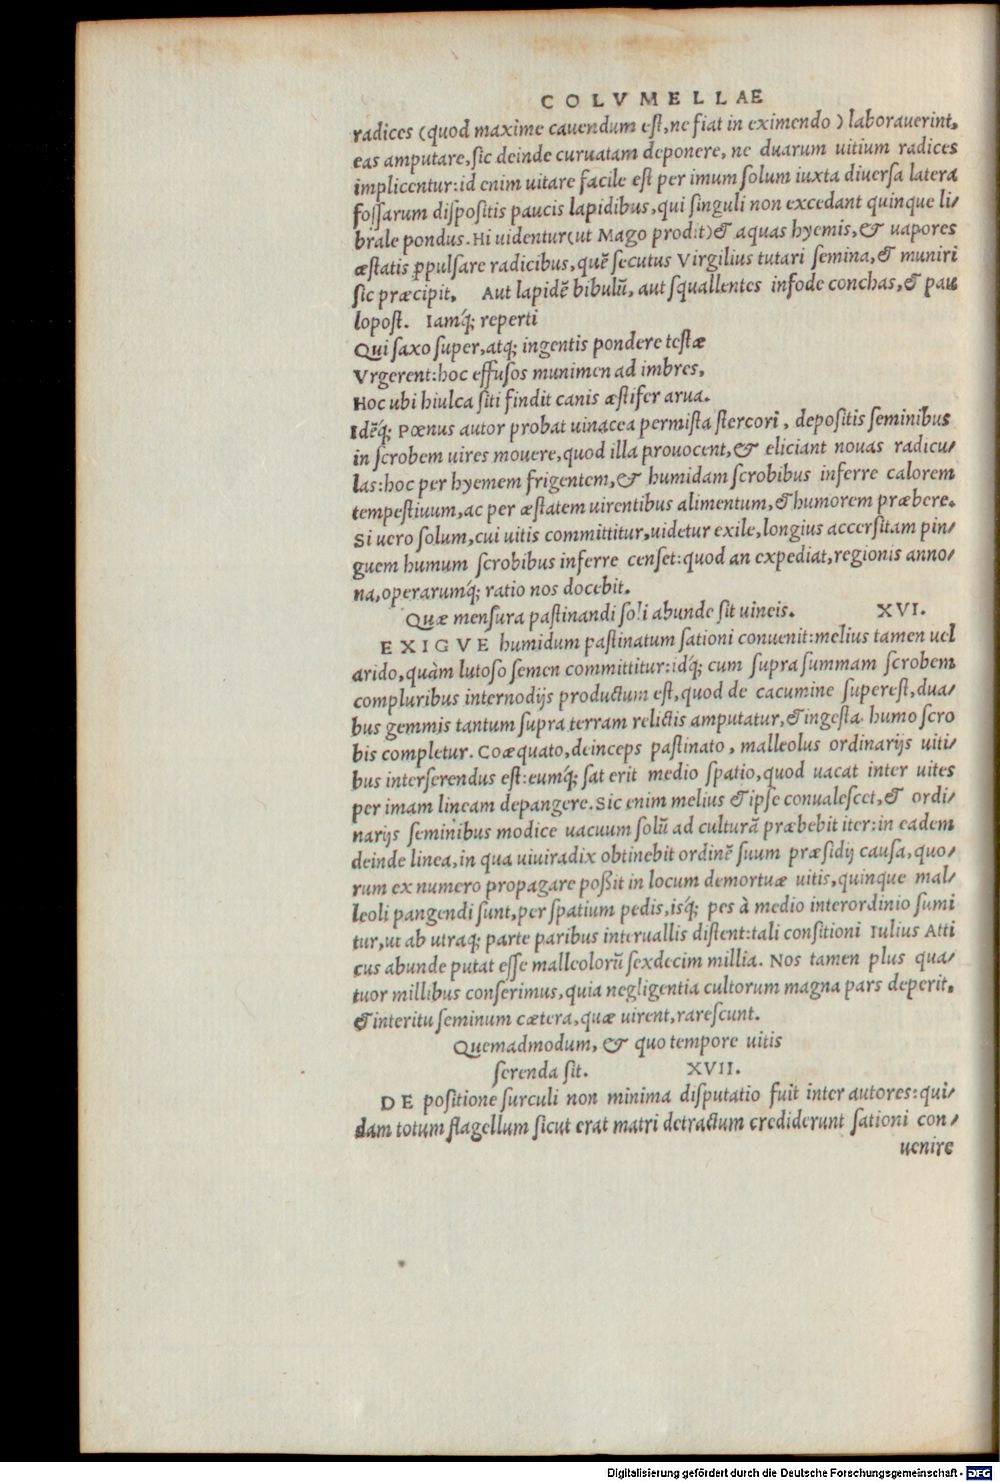 COLVMELLAE
radices (quod maxime cauendum est, ne fiat in eximendo) laborauerint,
eas amputare, sic deinde curuatam deponere, ne duarum uitium radices
implicentur: id enim uitare facile est per imum solum iuxta diuersa latera
fossarum dispositis paucis lapidibus, qui singuli non excedant quinque li/
brale pondus. Hi uidentur (ut Mago prodit) & aquas hyemis, & uapores
æstatis ꝓpulsare radicibus, quẽ secutus Virgilius tutari semina, & muniri
sic præcipit, Aut lapidẽ bibulũ, aut squallentes infode conchas, & pau
lopost. Iamq́; reperti
Qui saxo super, atq; ingentis pondere testæ
Vrgerent: hoc effusos munimen ad imbres,
Hoc ubi hiulca siti findit canis æstifer arua.
Idẽq; Pœnus autor probat uinacea permista stercori, depositis seminibus
in scrobem uires mouere, quod illa prouocent, & eliciant nouas radicu/
las: hoc per hyemem frigentem, & humidam scrobibus inferre calorem
tempestiuum, ac per æstatem uirentibus alimentum, & humorem præbere.
Si uero solum, cui uitis committitur, uidetur exile, longius accersitam pin/
guem humum scrobibus inferre censet: quod an expediat, regionis anno/
na, operarumq́; ratio nos docebit.
Quæ mensura pastinandi soli abunde sit uineis. XVI.
EXIGVE humidum pastinatum sationi conuenit: melius tamen uel
arido, quàm lutoso semen committitur: idq́; cum supra summam scrobem
compluribus internodijs productum est, quod de cacumine superest, dua/
bus gemmis tantum supra terram relictis amputatur, & ingesta humo scro
bis completur. Coæquato, deinceps pastinato, malleolus ordinarijs uiti/
bus interserendus est: eumq́; sat erit medio spatio, quod uacat inter uites
per imam lineam depangere. Sic enim melius & ipse conualescet, & ordi/
narijs seminibus modice uacuum solũ ad culturã præbebit iter: in eadem
deinde linea, in qua uiuiradix obtinebit ordinẽ suum præsidij causa, quo/
rum ex numero propagare poßit in locum demortuæ uitis, quinque mal/
leoli pangendi sunt, per spatium pedis, isq́; pes à medio interordinio sumi
tur, ut ab utraq; parte paribus interuallis distent: tali consitioni Iulius Atti
cus abunde putat esse malleolorũ sexdecim millia. Nos tamen plus qua/
tuor millibus conserimus, quia negligentia cultorum magna pars deperit,
& interitu seminum cætera, quæ uirent, rarescunt.
Quemadmodum, & quo tempore uitis
serenda sit. XVII.
DE positione surculi non minima disputatio fuit inter autores: qui/
dam totum flagellum sicut erat matri detractum crediderunt sationi con/
uenire
Digitalisierung gefördert durch die Deutsche Forschungsgemeinschaft - DFG